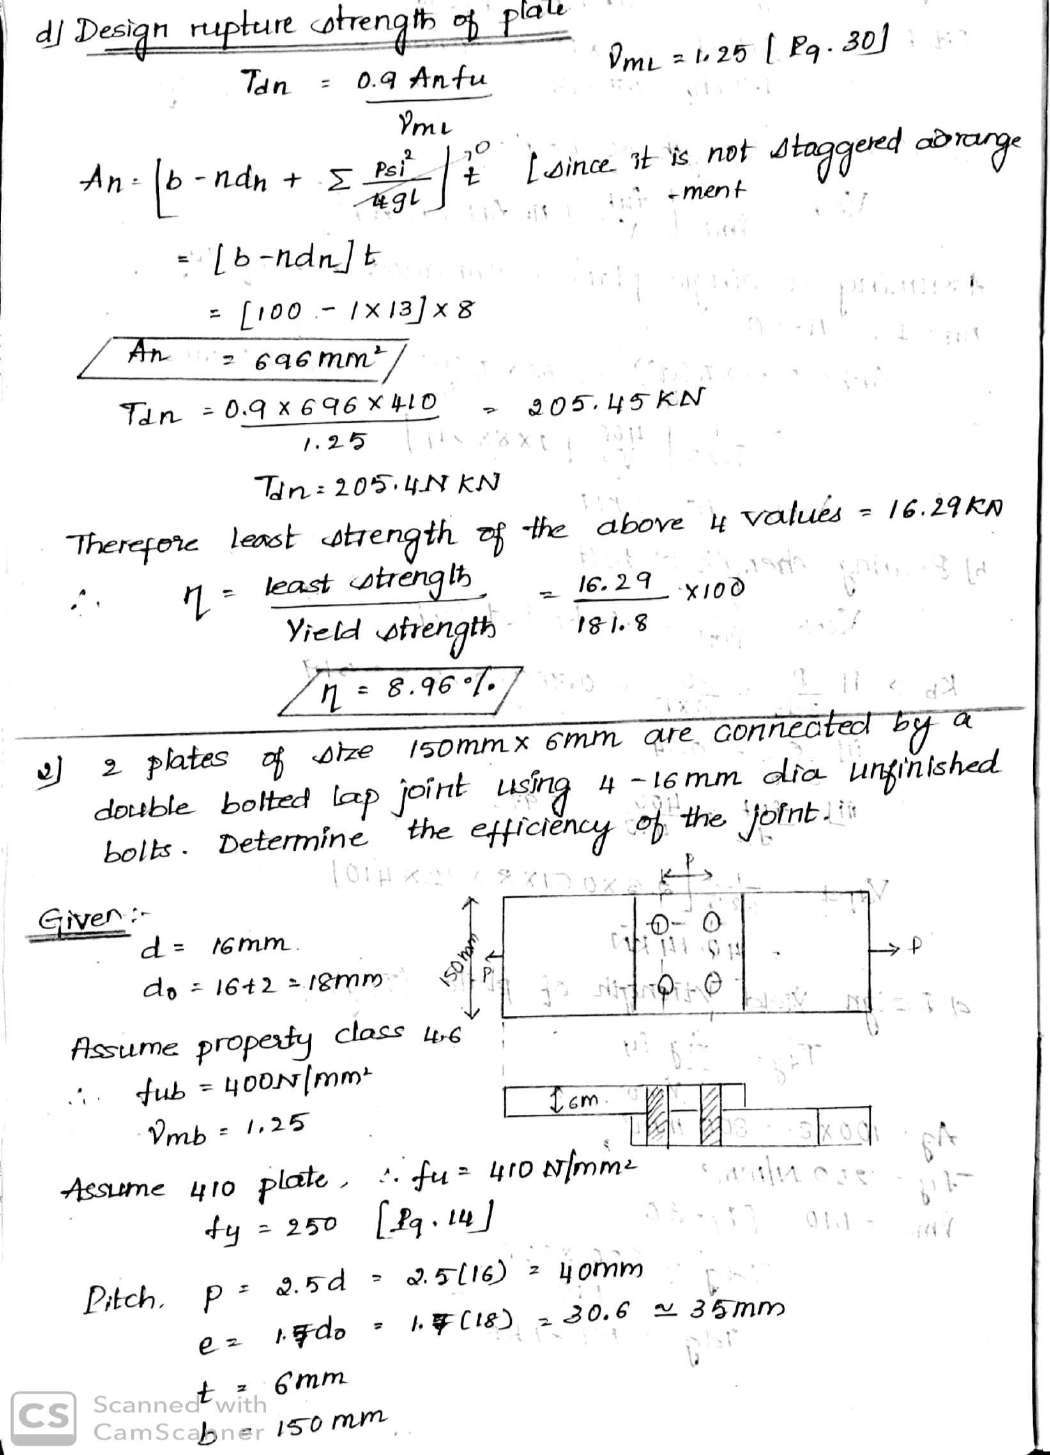 d) Design rupture strength of plate
Tdn = 0.9 An fu / γm1    γm1 = 1.25 [Pg. 30]
An = [b - ndn + Σ Psi² / 4gi] t  0 [since it is not staggered arrange
-ment
= [b - ndn] t
= [100 - 1 x 13] x 8
An = 696 mm²
Tdn = 0.9 x 696 x 410 / 1.25 = 205.45 KN
Tdn = 205.4N KN
Therefore least strength of the above 4 values = 16.29 KN
∴ η = least strength / Yield strength = 16.29 / 181.8 x 100
η = 8.96 %
2) 2 plates of size 150mm x 6mm are connected by a
double bolted lap joint using 4 - 16 mm dia unfinished
bolts. Determine the efficiency of the joint.
P
Given :-
d = 16mm.
150mm
P
P
do = 16+2 = 18mm
Assume property class 4.6
∴ fub = 400 N/mm²
6m
γmb = 1.25
Assume 410 plate, ∴ fu = 410 N/mm²
fy = 250 [Pg. 14]
Pitch, p = 2.5d = 2.5(16) = 40mm
e = 1.7do = 1.7(18) = 30.6 ≈ 35mm
t = 6mm
b = 150 mm
CS Scanned with
CamScanner